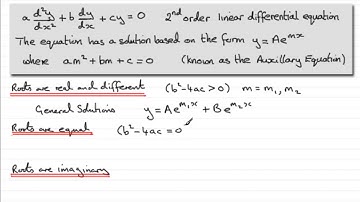 a d²y/dx² + b dy/dx + cy = 0   2nd order linear differential equation
The equation has a solution based on the form y = Ae^mx
where am² + bm + c = 0   (known as the Auxillary Equation)
Roots are real and different   (b²-4ac > 0)   m = m₁, m₂
General Solutions   y = Ae^m₁x + Be^m₂x
Roots are equal   (b²-4ac = 0
Roots are imaginary